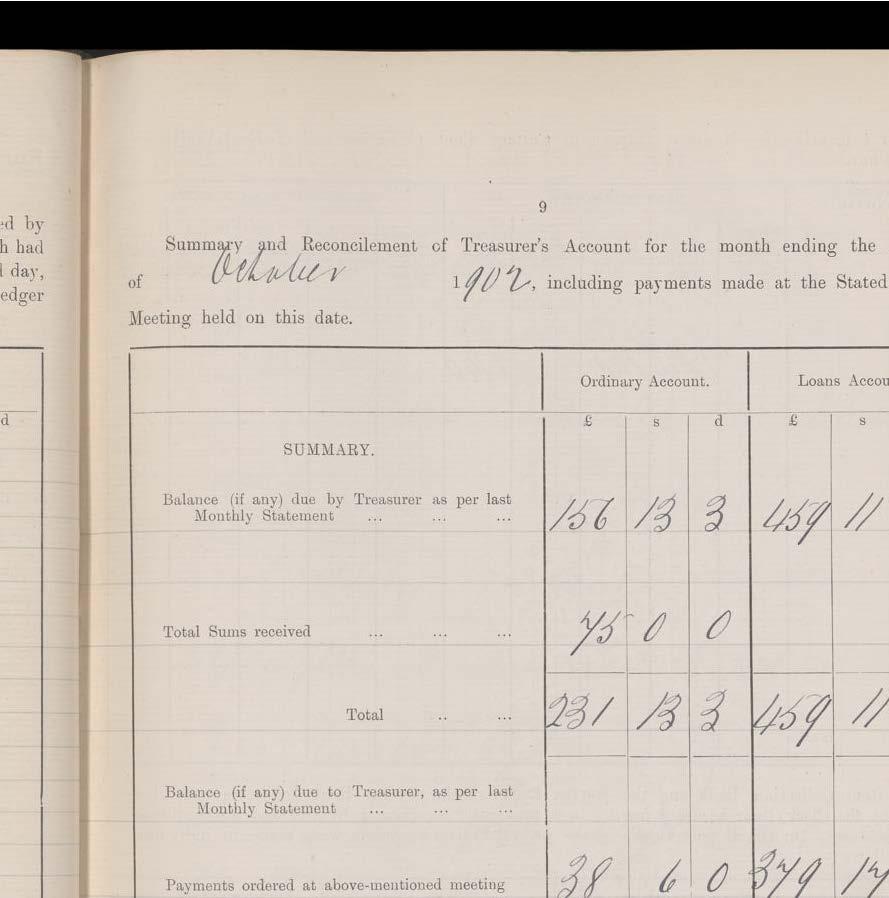 ed by
h had
l day,
edger
d
9
Summary and Reconcilement of Treasurer's Account for the month ending the
of October 1902, including payments made at the Stated
Meeting held on this date.
Ordinary Account. Loans Accou
£ s d £ s
SUMMARY.
Balance (if any) due by Treasurer as per last
Monthly Statement ... ... ... 156 13 3 459 11
Total Sums received ... ... ... 75 0 0
Total .. ... 231 13 3 459 11
Balance (if any) due to Treasurer, as per last
Monthly Statement ... ... ...
Payments ordered at above-mentioned meeting 38 6 0 379 17